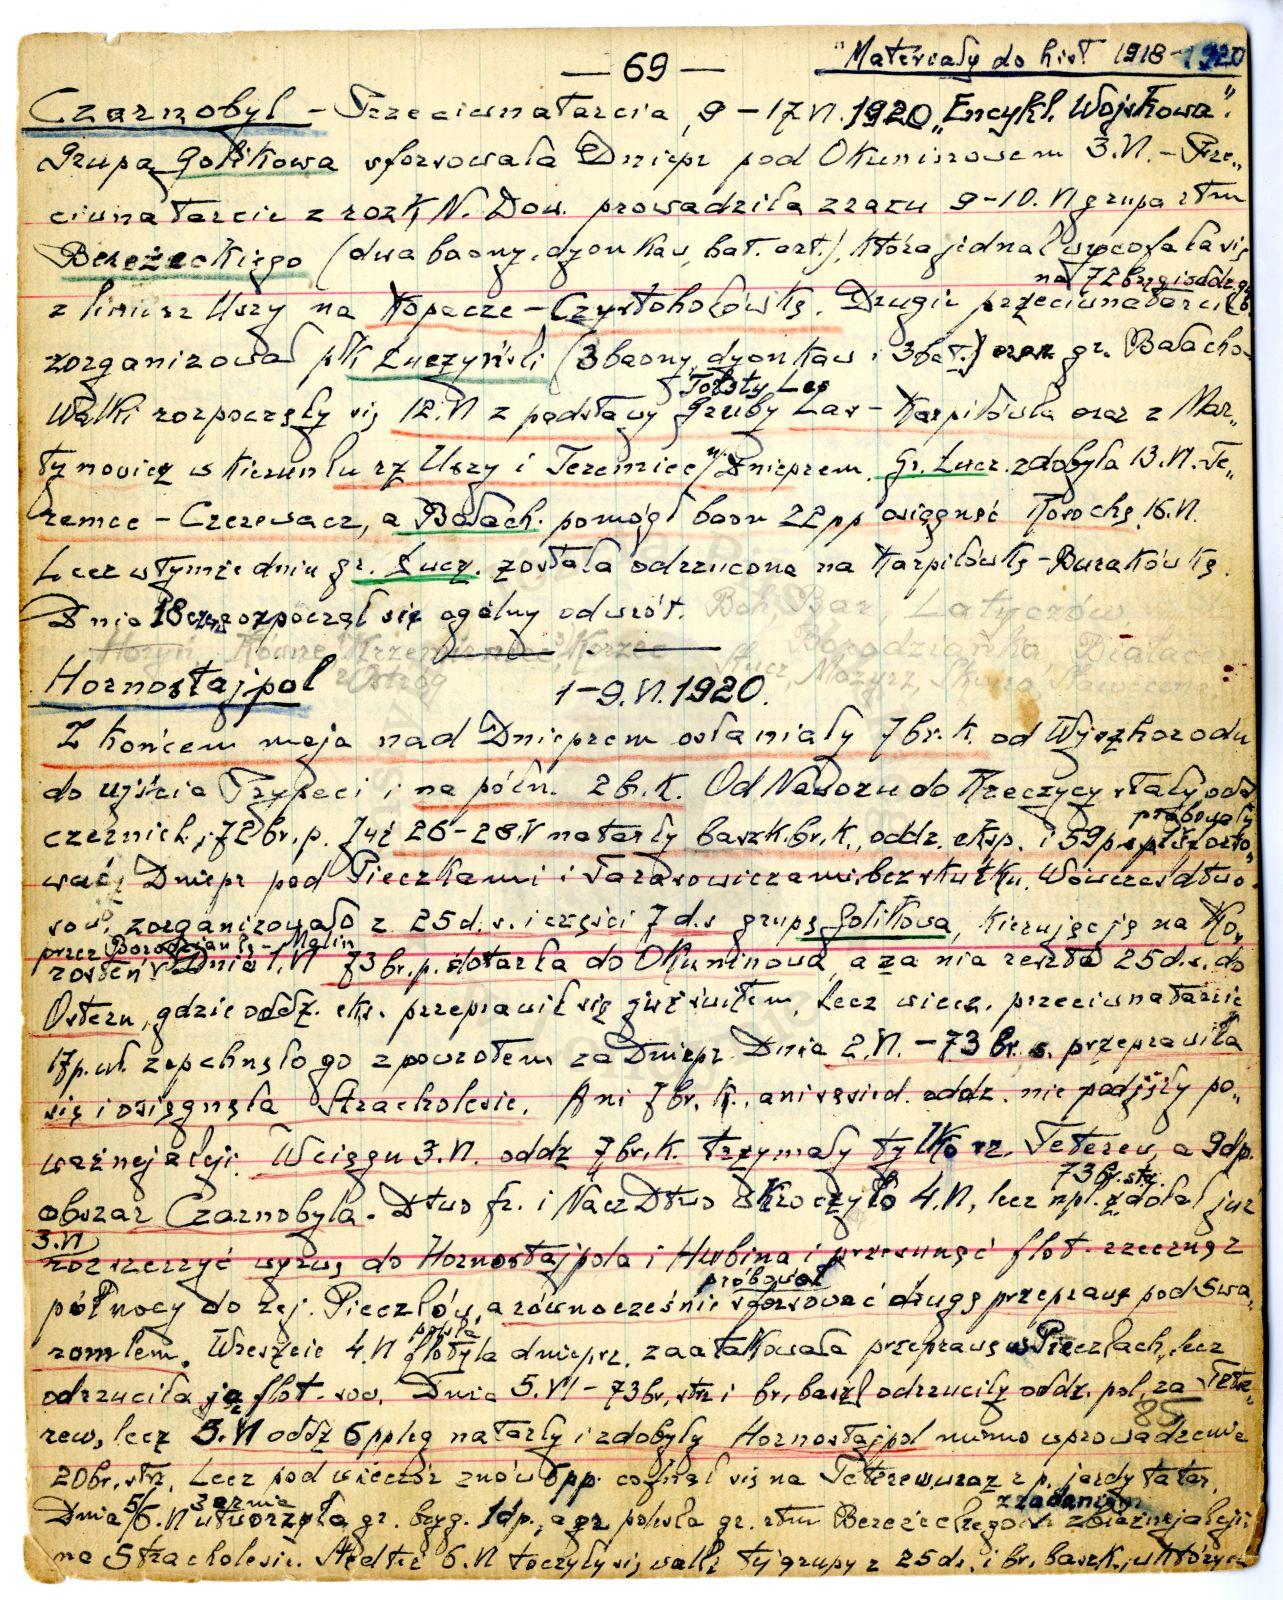 "Materiały do hist 1918-1920
— 69 —
Czarnobyl - Przeciwnatarcia, 9-17.VI.1920 „Encykl. Wojskowa".
Grupa Golikowa sforsowała Dniepr pod Okuninowem 3.VI. - Prze„
ciwnatarcie z rozk. N. Dow. prowadziła zrazu 9-10.VI grupa rtm
Bereżeckiego (dwa baony, dyon kaw, bat. art.), która jednak wycofała się
na 72 bryg i oddz.
z linii rz Uszy na Kopacze - Czystohołówkę. Drugie przeciwnatarcie
zorganizował płk Łuczyński (3 baony, dyon kaw i 3 bat.) oraz gr. Bałacho-
Tołsty Les
Walki rozpoczęły się 12.VI z podstawy Gruby Las - Karpiłówka oraz z Mar„
tynowicz w kierunku rz Uszy i Teremiec n/Dnieprem. Gr. Łucz. zdobyła 13.VI. Te„
remce - Czerewacz, a Bałach. pomógł baon 22 pp osięgnąć Korochę 16.VI.
Lecz w tymże dniu gr. Łucz. została odrzucona na Karpiłówkę - Burakówkę.
Dnia 18 czerw rozpoczął się ogólny odwrót. Bar, Latyczów
Horyń, Równe, Krzemieniec, Korzec Borodzianka, Biała
Ostróg Słucz, Mozyrz, Skwira, Sławeczna
Hornostajpol 1-9.VI.1920.
Z końcem maja nad Dnieprem osłaniały 7 br. K. od Wyszhorodu
do ujścia Prypeci i na półn. 2 b. K. Od Nawozu do Rzeczycy stały oddz
próbowały
czernich. i 72 br. p. Już 26-28.V natarły baszk. br. k., oddz. eksp. i 59 p. p. i sforso„
wać Dniepr pod Pieczkami i Tarasowiczami, bez skutku. Wówczas dtwo
sow. zorganizowało z 25 d. s. i części 7 d. s grupę Golikowa, kierując ją na Ko„
przez Borodziankę - Malin
rosteń. Dnia 1.VI 73 br. p. dotarła do Okuninowa, a za nią reszta 25 d. s. do
Ostern, gdzie oddz. eks. przeprawił się już świtem, lecz wiecz. przeciwnatarcie
17 p. uł. zepchnęło go z powrotem za Dniepr. Dnia 2.VI. - 73 br. s. przeprawiła
się i osięgnęła Stracholesie. Ani 7 br. K., ani sąsied. oddz. nie podjęły po„
ważnej akcji. W ciągu 3.VI. oddz 7 br. K. trzymały tylko rz. Teterew, a 9 dp.
73 br. strz.
obszar Czarnobyla. Dtwo fr. i Nacz Dtwo wkroczyło 4.VI, lecz npl. zdołał już
3.VI
rozszerzyć wyrwę do Hornostajpola i Hubina i przesunąć flot. rzeczną z
próbował
północy do rej. Pieczków, a równocześnie sforsować drugą przeprawę pod Swa„
polska
romłem. Wreszcie 4.VI flotyla dnieprz. zaatakowała przeprawę w Pieczkach, lecz
odrzuciła ją flot. sow. Dnia 5.VI - 73 br. strz i br. baszk odrzuciły oddz. pol. za Tete„
85
rew, lecz 5.VI oddz 6 ppleg natarły i zdobyły Hornostajpol mimo wprowadzenia
20 br. strz. Lecz pod wieczór znów 6 pp. cofnął się na Teterew wraz z p. jazdy tatar.
3 armia z zadaniem
Dnia 5/6.VI utworzyła gr. bryg. 1 dp., a gr polska gr. rtm Bereżeckiego zbieżnej akcji
na Stracholesie. Też 6.VI toczyły się walki tej grupy z 25 ds. i br. baszk., w których